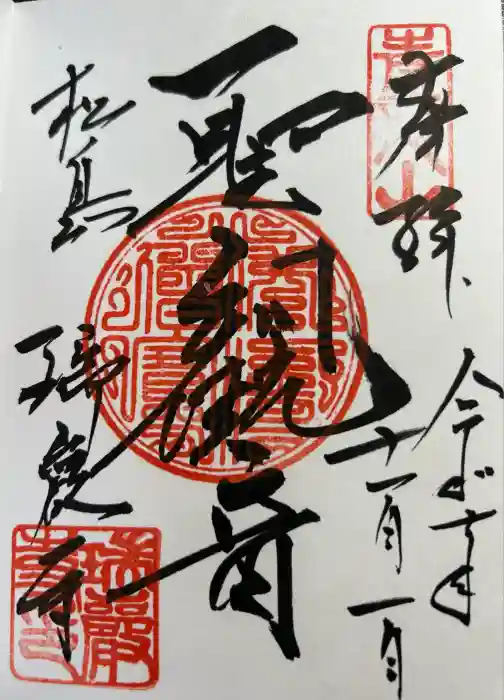 青龍山
奉拝
令和七年
十一月一日
聖観世音
松島
瑞巌寺
瑞巖